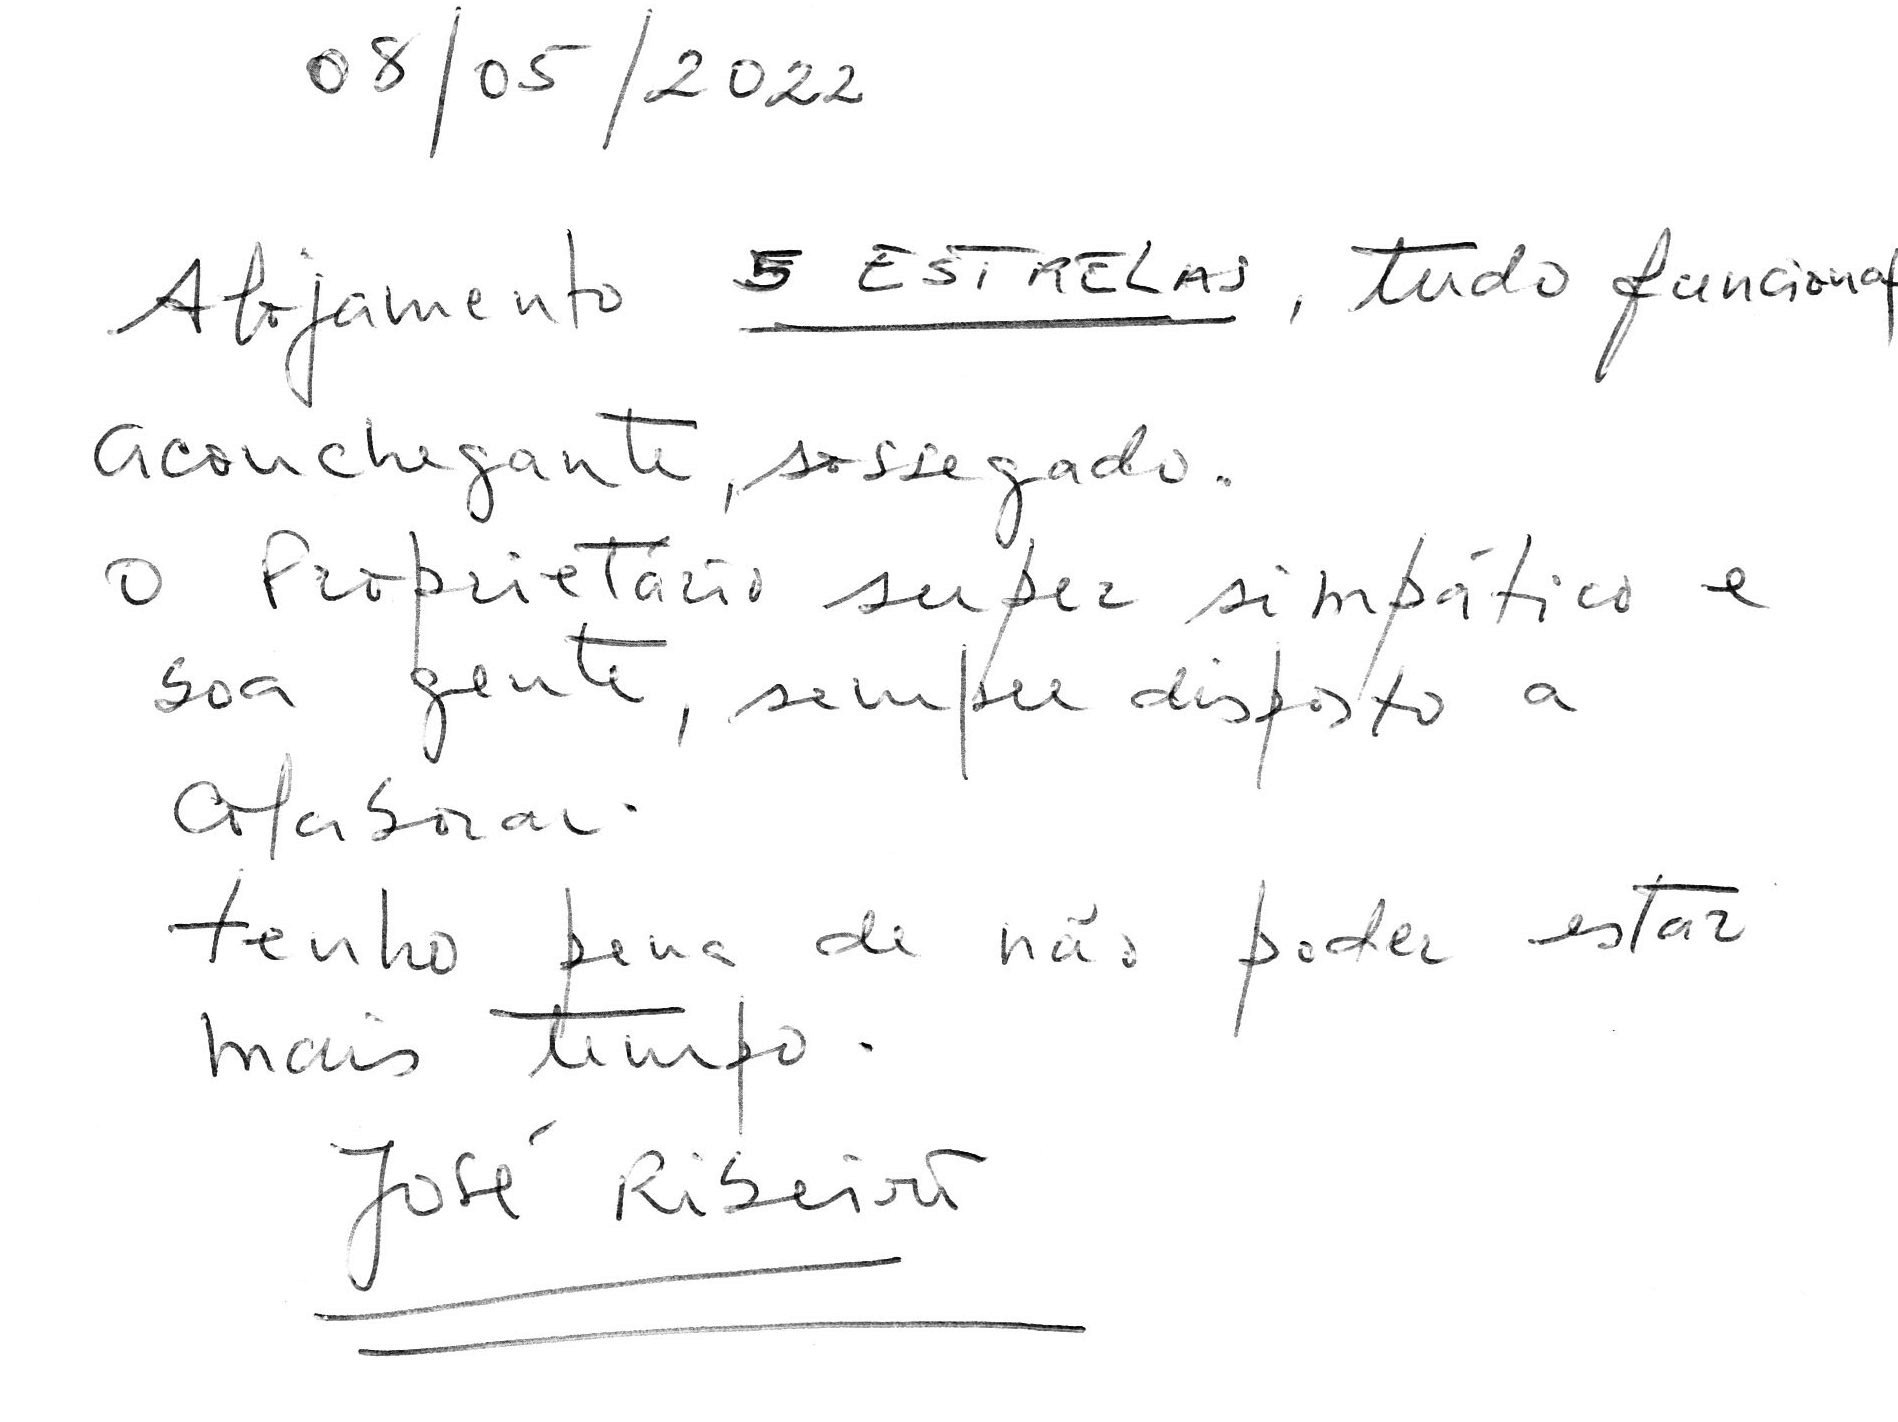 08/05/2022
Alojamento 5 ESTRELAS, tudo funcional
aconchegante, sossegado.
O Proprietário super simpático e
boa gente, sempre disposto a
colaborar.
tenho pena de não poder estar
mais tempo.
José Ribeiro